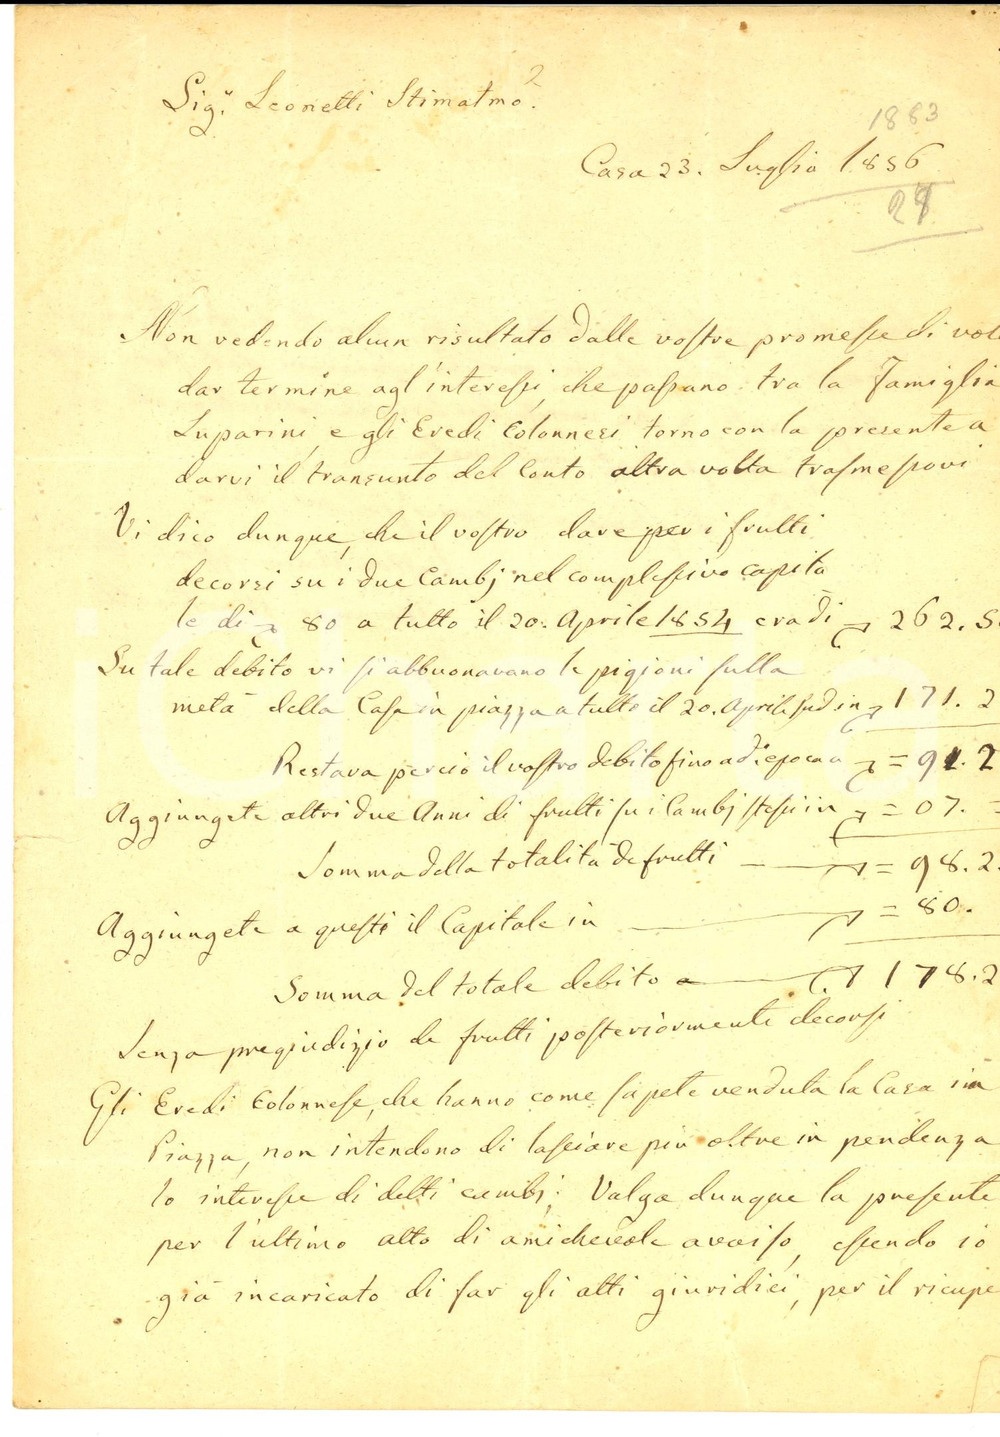 Sig.r Leonetti Stimatmo.
1883
Casa 23. Luglio 1856
28
Non vedendo alcun risultato dalle vostre promesse di vol
dar termine agl'interessi, che passano tra la Famiglia
Luparini, e gli Eredi Colonnesi, torno con la presente a
darvi il transunto del Conto altra volta trasmessovi
Vi dico dunque, che il vostro dare per i frutti
decorsi su i due Cambj nel complessivo capita
le di 80 a tutto il 20. Aprile 1854 era di 262. 5
Su tale debito vi si abbuonavano le pigioni sulla
metà della Casa in piazza a tutto il 20. Aprile sud. in 171. 2
Restava perciò il vostro debito fino a d. epoca a = 91. 2
Aggiungete altri due Anni di frutti su i Cambj stessi in = 07. =
Somma della totalità de frutti = 98. 2
Aggiungete a questi il Capitale in = 80.
Somma del totale debito a 178. 2
Senza pregiudizio de frutti posteriormente decorsi
Gli Eredi Colonnese, che hanno come sapete venduta la Casa in
Piazza, non intendono di lasciare più oltre in pendenza
lo interesse di detti cambj; Valga dunque la presente
per l'ultimo atto di amichevole avviso, essendo io
già incaricato di far gli atti giuridici, per il ricupe